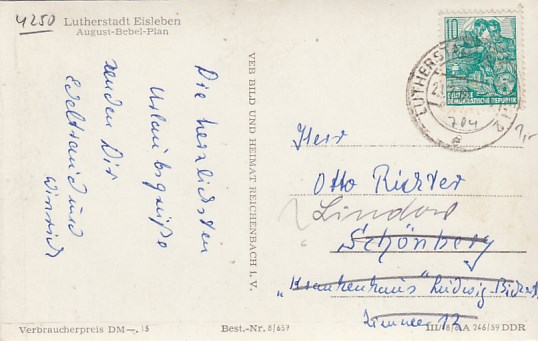 4250
Lutherstadt Eisleben
August-Bebel-Plan
Die herzlichsten
Urlaubsgrüße
senden Dir
Edeltraud und
Winrich
VEB BILD UND HEIMAT REICHENBACH I. V.
10
DEUTSCHE
DEMOKRATISCHE REPUBLIK
LUTHERSTADT
704
e
1,-
Herr
Otto Richter
Lindow
Schönberg
"Krankenhaus" Ludwig
Zimmer 12
Verbraucherpreis DM —.15
Best.-Nr. 8/657
III/8/6 A 246/59 DDR